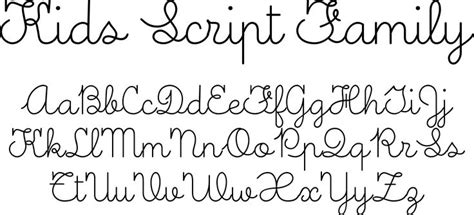 Kids Script Family
AaBbCcDdEeFfGgHhIiJj
KkLlMmNnOoPpQqRrSs
TtUuVvWwXxYyZz